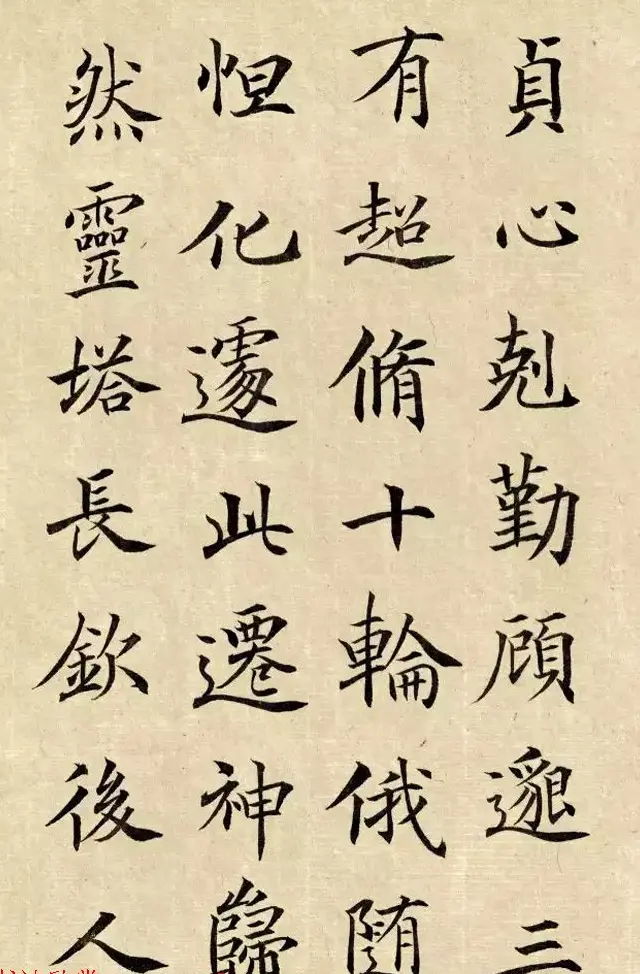 貞心剋勤顧邈三
有超脩十輪俄随
怛化遽此遷神歸
然靈塔長欽後人